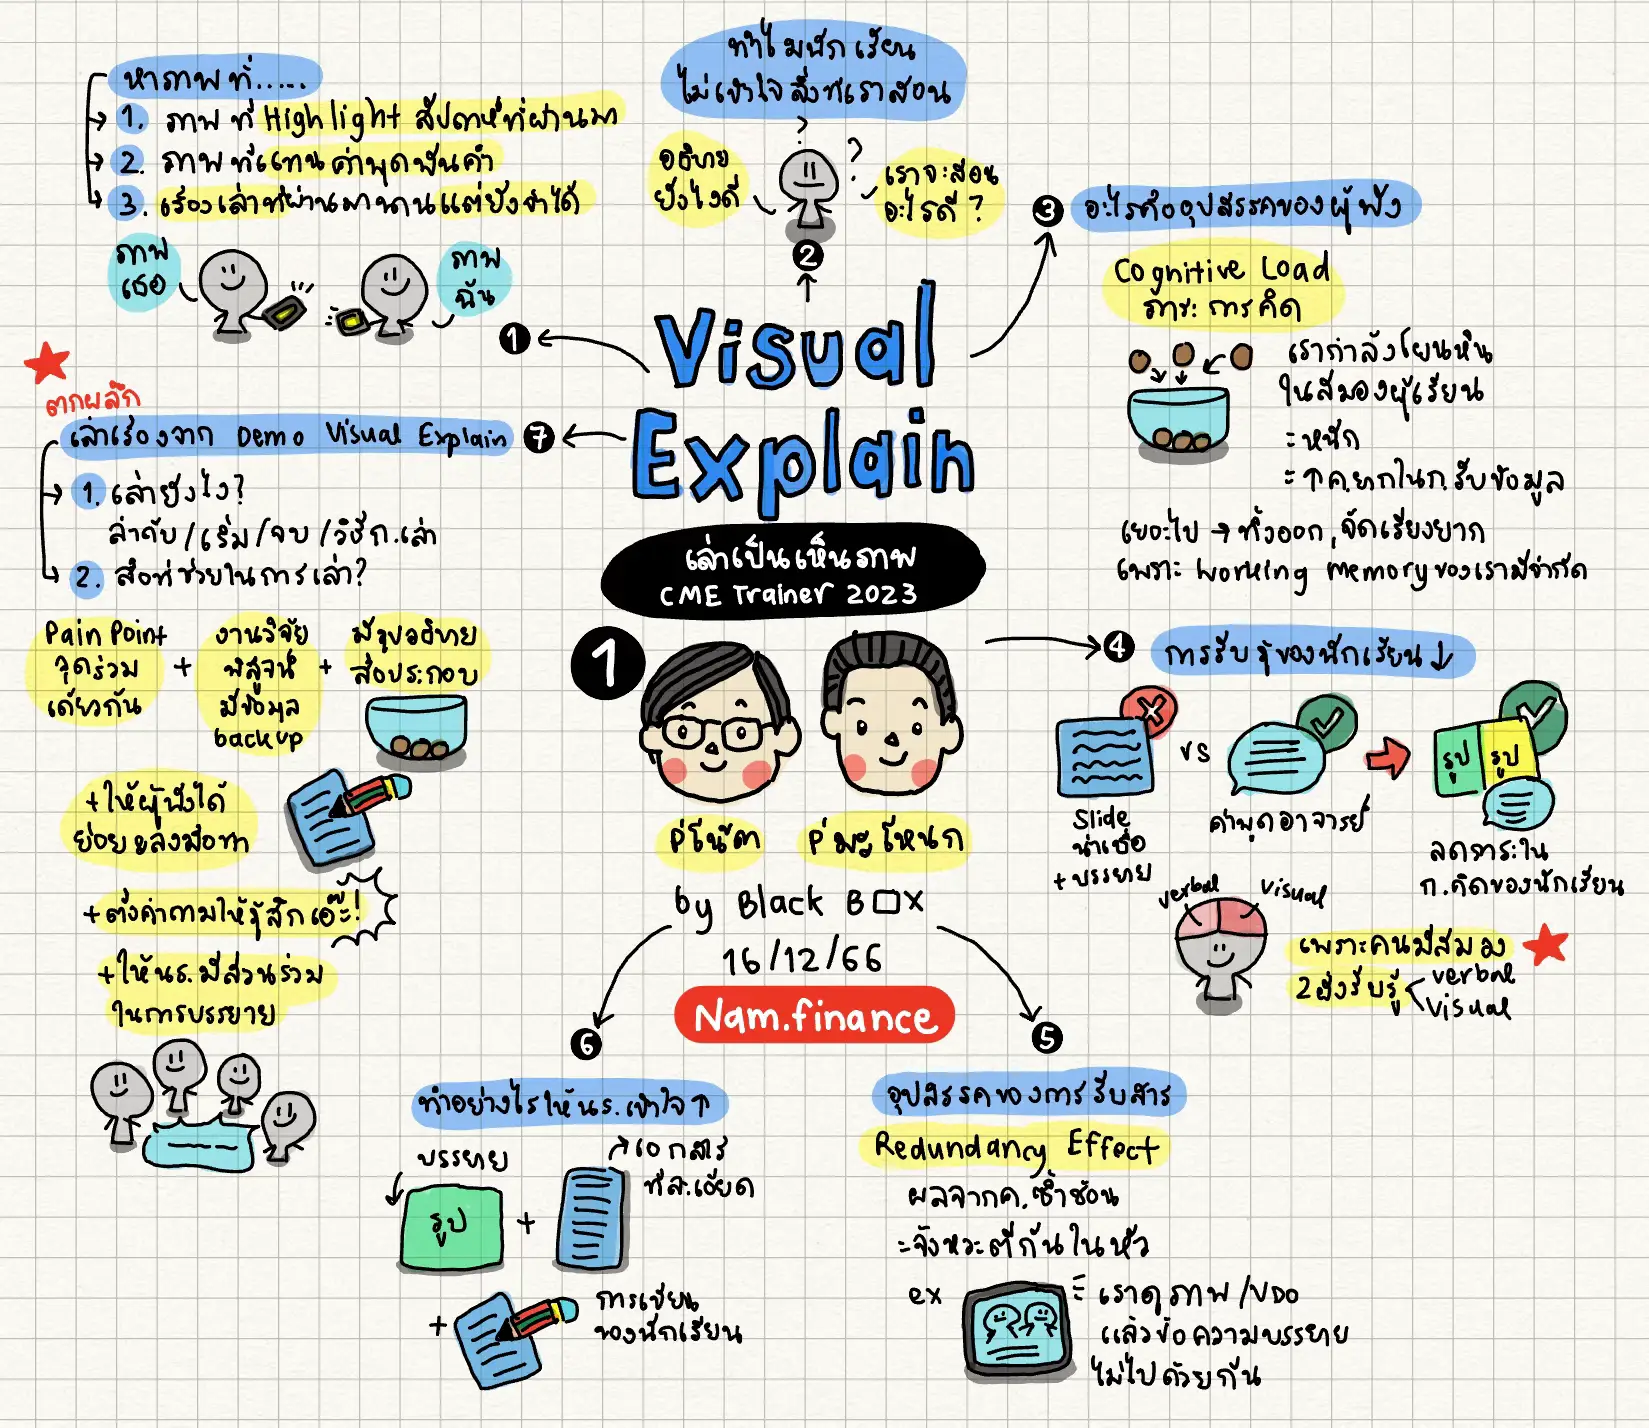 Visual
Explain
เล่าเป็นเห็นภาพ
CME Trainer 2023
1
พี่โน้ต
พี่มะโหนก
by Black BOX
16/12/66
Nam.finance
1
หาภาพที่......
1. ภาพที่ Highlight สัปดาห์ที่ผ่านมา
2. ภาพที่แทนคำพูดพันคำ
3. เรื่องเล่าที่ผ่านมานานแต่ยังจำได้
ภาพ
เธอ
ภาพ
ฉัน
2
ทำไมนักเรียน
ไม่เข้าใจสิ่งที่เราสอน
?
?
อธิบาย
ยังไงดี
เราจะสอน
อะไรดี ?
3
อะไรคืออุปสรรคของผู้ฟัง
Cognitive Load
ภาระการคิด
เรากำลังโยนหิน
ในสมองผู้เรียน
= หนัก
= ↑ ค.ยากในก.รับข้อมูล
เยอะไป → ทิ้งออก, จัดเรียงยาก
เพราะ working memory ของเรามีจำกัด
4
การรับรู้ของนักเรียน ↓
vs
รูป
รูป
Slide
น่าเชื่อ
+ บรรยาย
คำพูดอาจารย์
ลดภาระใน
ก.คิดของนักเรียน
verbal
visual
เพราะคนมีสมอง
2 ฝั่งรับรู้
verbal
visual
5
อุปสรรคของการรับสาร
Redundancy Effect
ผลจากค.ซ้ำซ้อน
= จังหวะตีกันในหัว
ex
= เราดูภาพ/VDO
แล้วข้อความบรรยาย
ไม่ไปด้วยกัน
6
ทำอย่างไรให้นร.เข้าใจ ↑
บรรยาย
รูป
+
เอกสาร
ที่ละเอียด
+
การเขียน
ของนักเรียน
7
ตกผลึก
เล่าเรื่องจาก Demo Visual Explain
1. เล่ายังไง?
ลำดับ/เริ่ม/จบ/วิธีก.เล่า
2. สื่อที่ช่วยในการเล่า?
Pain Point
จุดร่วม
เดียวกัน
+
งานวิจัย
พิสูจน์
มีข้อมูล
backup
+
มีรูปอธิบาย
สื่อประกอบ
+ ให้ผู้ฟังได้
ย่อยและลงมือทำ
+ ตั้งคำถามให้รู้สึกเอ๊ะ!
+ ให้นร.มีส่วนร่วม
ในการบรรยาย